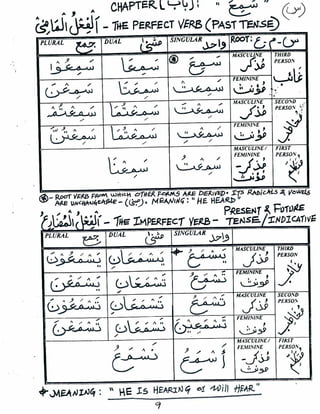 CHAPTER [باب]: "سَمِعَ" (س)
اَلْفِعْلُ الْمَاضِيْ - THE PERFECT VERB (PAST TENSE)
PLURAL جمع DUAL مثنى SINGULAR واحد ROOT: س-م-ع
سَمِعُوْا سَمِعَا سَمِعَ MASCULINE مذكر THIRD PERSON غائب
سَمِعْنَ سَمِعَتَا سَمِعَتْ FEMININE مؤنث
سَمِعْتُمْ سَمِعْتُمَا سَمِعْتَ MASCULINE مذكر SECOND PERSON مخاطب
سَمِعْتُنَّ سَمِعْتُمَا سَمِعْتِ FEMININE مؤنث
سَمِعْنَا سَمِعْتُ MASCULINE/ FEMININE مذكر مؤنث FIRST PERSON متكلم
- ROOT VERB FROM WHICH OTHER FORMS ARE DERIVED. ITS RADICALS & VOWELS
ARE UNCHANGEABLE - MEANING: "HE HEARD"
PRESENT & FUTURE
اَلْفِعْلُ الْمُضَارِعُ - THE IMPERFECT VERB - TENSE/INDICATIVE
PLURAL جمع DUAL مثنى SINGULAR واحد
يَسْمَعُوْنَ يَسْمَعَانِ يَسْمَعُ MASCULINE مذكر THIRD PERSON غائب
يَسْمَعْنَ تَسْمَعَانِ تَسْمَعُ FEMININE مؤنث
تَسْمَعُوْنَ تَسْمَعَانِ تَسْمَعُ MASCULINE مذكر SECOND PERSON مخاطب
تَسْمَعْنَ تَسْمَعَانِ تَسْمَعِيْنَ FEMININE مؤنث
نَسْمَعُ أَسْمَعُ MASCULINE/ FEMININE مذكر مؤنث FIRST PERSON متكلم
MEANING: "HE IS HEARING or Will HEAR"
9